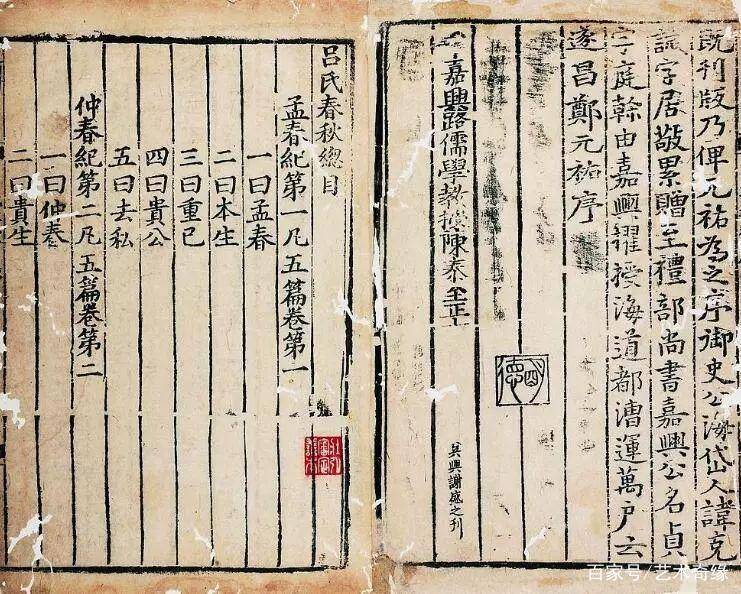 既刊版乃俾元祐為之序御史公海岱人諱克
誠字居敬累贈至禮部尚書嘉興公名貞
字庭幹由嘉興擢授海道都漕運萬戶云
遂昌鄭元祐序
嘉興路儒學教授陳泰至正
吳興謝盛之刊
呂氏春秋總目
孟春紀第一凡五篇卷第一
一曰孟春
二曰本生
三曰重己
四曰貴公
五曰去私
仲春紀第二凡五篇卷第二
一曰仲春
二曰貴生
百家号/艺术奇缘